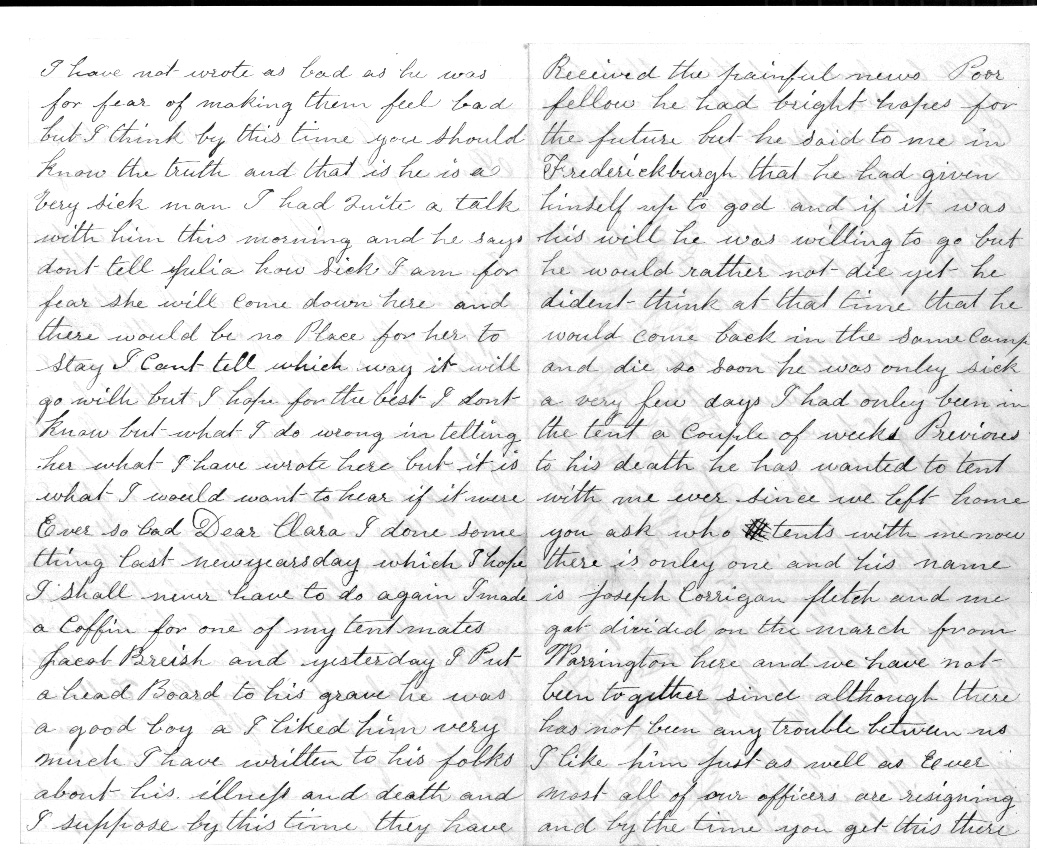 I have not wrote as bad as he was
for fear of making them feel bad
but I think by this time you should
know the truth and that is he is a
very sick man I had quite a talk
with him this morning and he says
dont tell Julia how sick I am for
fear she will come down here and
there would be no Place for her to
stay I cant tell which way it will
go with but I hope for the best I dont
know but what I do wrong in telling
her what I have wrote here but it is
what I would want to hear if it were
Ever so bad Dear Clara I done some
thing last newyearsday which I hope
I shall never have to do again I made
a Coffin for one of my tent mates
Jacob Breish and yesterday I Put
a head Board to his grave he was
a good boy a I liked him very
much I have written to his folks
about his illness and death and
I suppose by this time they have
Received the painful news Poor
fellow he had bright hopes for
the future but he said to me in
Frederickburgh that he had given
himself up to god and if it was
his will he was willing to go but
he would rather not die yet he
dident think at that time that he
would come back in the same camp
and die so soon he was only sick
a very few days I had onley been in
the tent a Couple of weeks Previous
to his death he has wanted to tent
with me ever since we left home
you ask who tents with me now
there is onley one and his name
is Joseph Corrigan fletch and me
got divided on the march from
Warrington here and we have not
been together since although there
has not been any trouble between us
I like him just as well as Ever
most all of our officers are resigning
and by the time you get this there